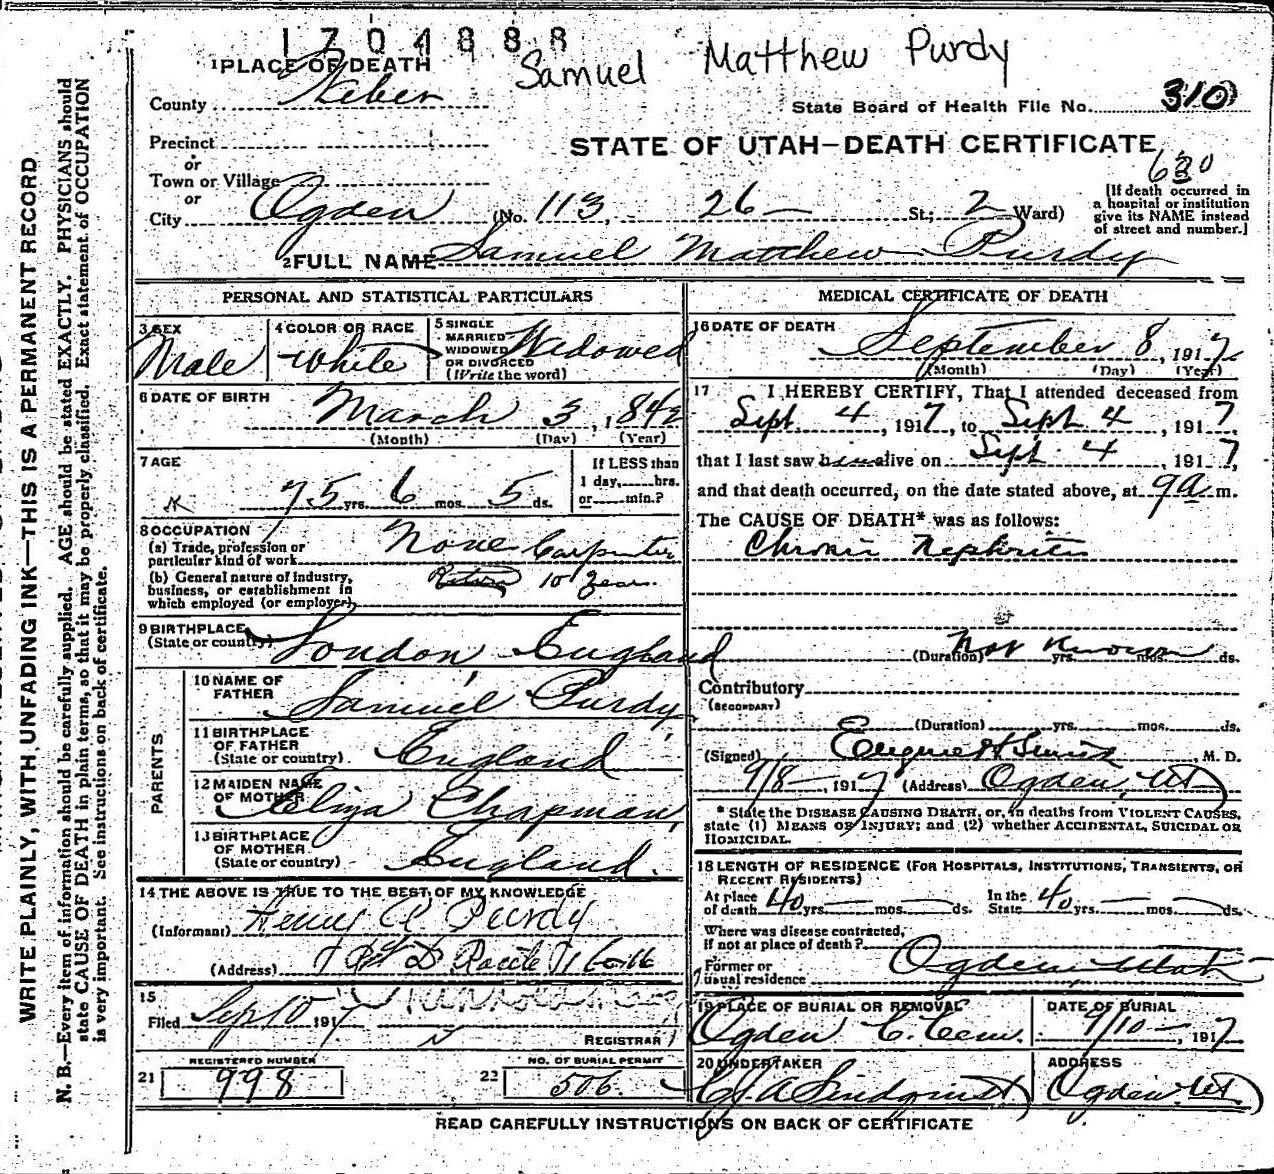 1704888
Samuel Matthew Purdy
1 PLACE OF DEATH
County Weber
State Board of Health File No. 310
Precinct
STATE OF UTAH—DEATH CERTIFICATE
or
630
Town or Village
or
City Ogden (No. 113, 26 — St; 2 Ward)
[If death occurred in
a hospital or institution
give its NAME instead
of street and number.]
2 FULL NAME Samuel Matthew Purdy
PERSONAL AND STATISTICAL PARTICULARS
3 SEX
Male
4 COLOR OR RACE
White
5 SINGLE
MARRIED
WIDOWED
OR DIVORCED
(Write the word)
Widowed
6 DATE OF BIRTH
March 3, 1842
(Month) (Day) (Year)
7 AGE
75 yrs. 6 mos. 5 ds.
If LESS than
1 day,......hrs.
or......min.?
8 OCCUPATION
(a) Trade, profession or
particular kind of work None Carpenter
(b) General nature of industry,
business, or establishment in
which employed (or employer)
10 years.
9 BIRTHPLACE
(State or country) London England
PARENTS
10 NAME OF
FATHER Samuel Purdy
11 BIRTHPLACE
OF FATHER
(State or country) England
12 MAIDEN NAME
OF MOTHER Eliza Chapman
13 BIRTHPLACE
OF MOTHER
(State or country) England.
14 THE ABOVE IS TRUE TO THE BEST OF MY KNOWLEDGE
(Informant) Purdy
(Address)
15
Filed Sep 10 1917
REGISTRAR
21 REGISTERED NUMBER
998
22 NO. OF BURIAL PERMIT
506
MEDICAL CERTIFICATE OF DEATH
16 DATE OF DEATH
September 8, 1917
(Month) (Day) (Year)
17 I HEREBY CERTIFY, That I attended deceased from
Sept 4, 1917, to Sept 4, 1917,
that I last saw alive on Sept 4, 1917,
and that death occurred, on the date stated above, at 9 a m.
The CAUSE OF DEATH* was as follows:
Chronic Nephritis
(Duration) Not Known yrs. mos. ds.
Contributory
(SECONDARY)
(Duration) yrs. mos. ds.
(Signed) Eugene H Smith, M. D.
9/8 —, 1917 (Address) Ogden, Ut
* State the DISEASE CAUSING DEATH, or, in deaths from VIOLENT CAUSES,
state (1) MEANS OF INJURY; and (2) whether ACCIDENTAL, SUICIDAL OR
HOMICIDAL.
18 LENGTH OF RESIDENCE (FOR HOSPITALS, INSTITUTIONS, TRANSIENTS, OR
RECENT RESIDENTS)
At place
of death 40 yrs. — mos. — ds.
In the
State 40 yrs. — mos. — ds.
Where was disease contracted,
if not at place of death?
Former or
usual residence Ogden Utah
19 PLACE OF BURIAL OR REMOVAL
Ogden C. Cem.
DATE OF BURIAL
9/10 —, 1917
20 UNDERTAKER
A Lindquist
ADDRESS
Ogden Ut.
READ CAREFULLY INSTRUCTIONS ON BACK OF CERTIFICATE
WRITE PLAINLY, WITH UNFADING INK—THIS IS A PERMANENT RECORD
N. B.—Every item of information should be carefully supplied. AGE should be stated EXACTLY. PHYSICIANS should
state CAUSE OF DEATH in plain terms, so that it may be properly classified. Exact statement of OCCUPATION
is very important. See instructions on back of certificate.